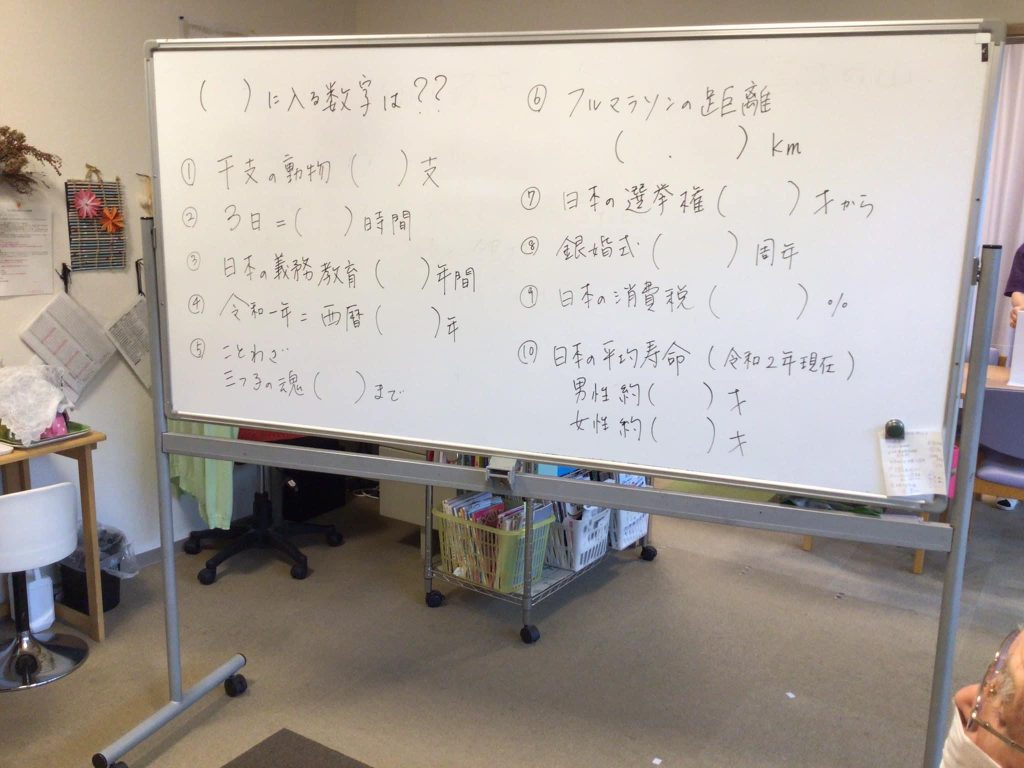 ( )に入る数字は??
① 干支の動物( )支
② 3日=( )時間
③ 日本の義務教育( )年間
④ 令和一年=西暦( )年
⑤ ことわざ
三つ子の魂( )まで
⑥ フルマラソンの距離
( . )km
⑦ 日本の選挙権( )才から
⑧ 銀婚式( )周年
⑨ 日本の消費税( )%
⑩ 日本の平均寿命(令和2年現在)
男性約( )才
女性約( )才